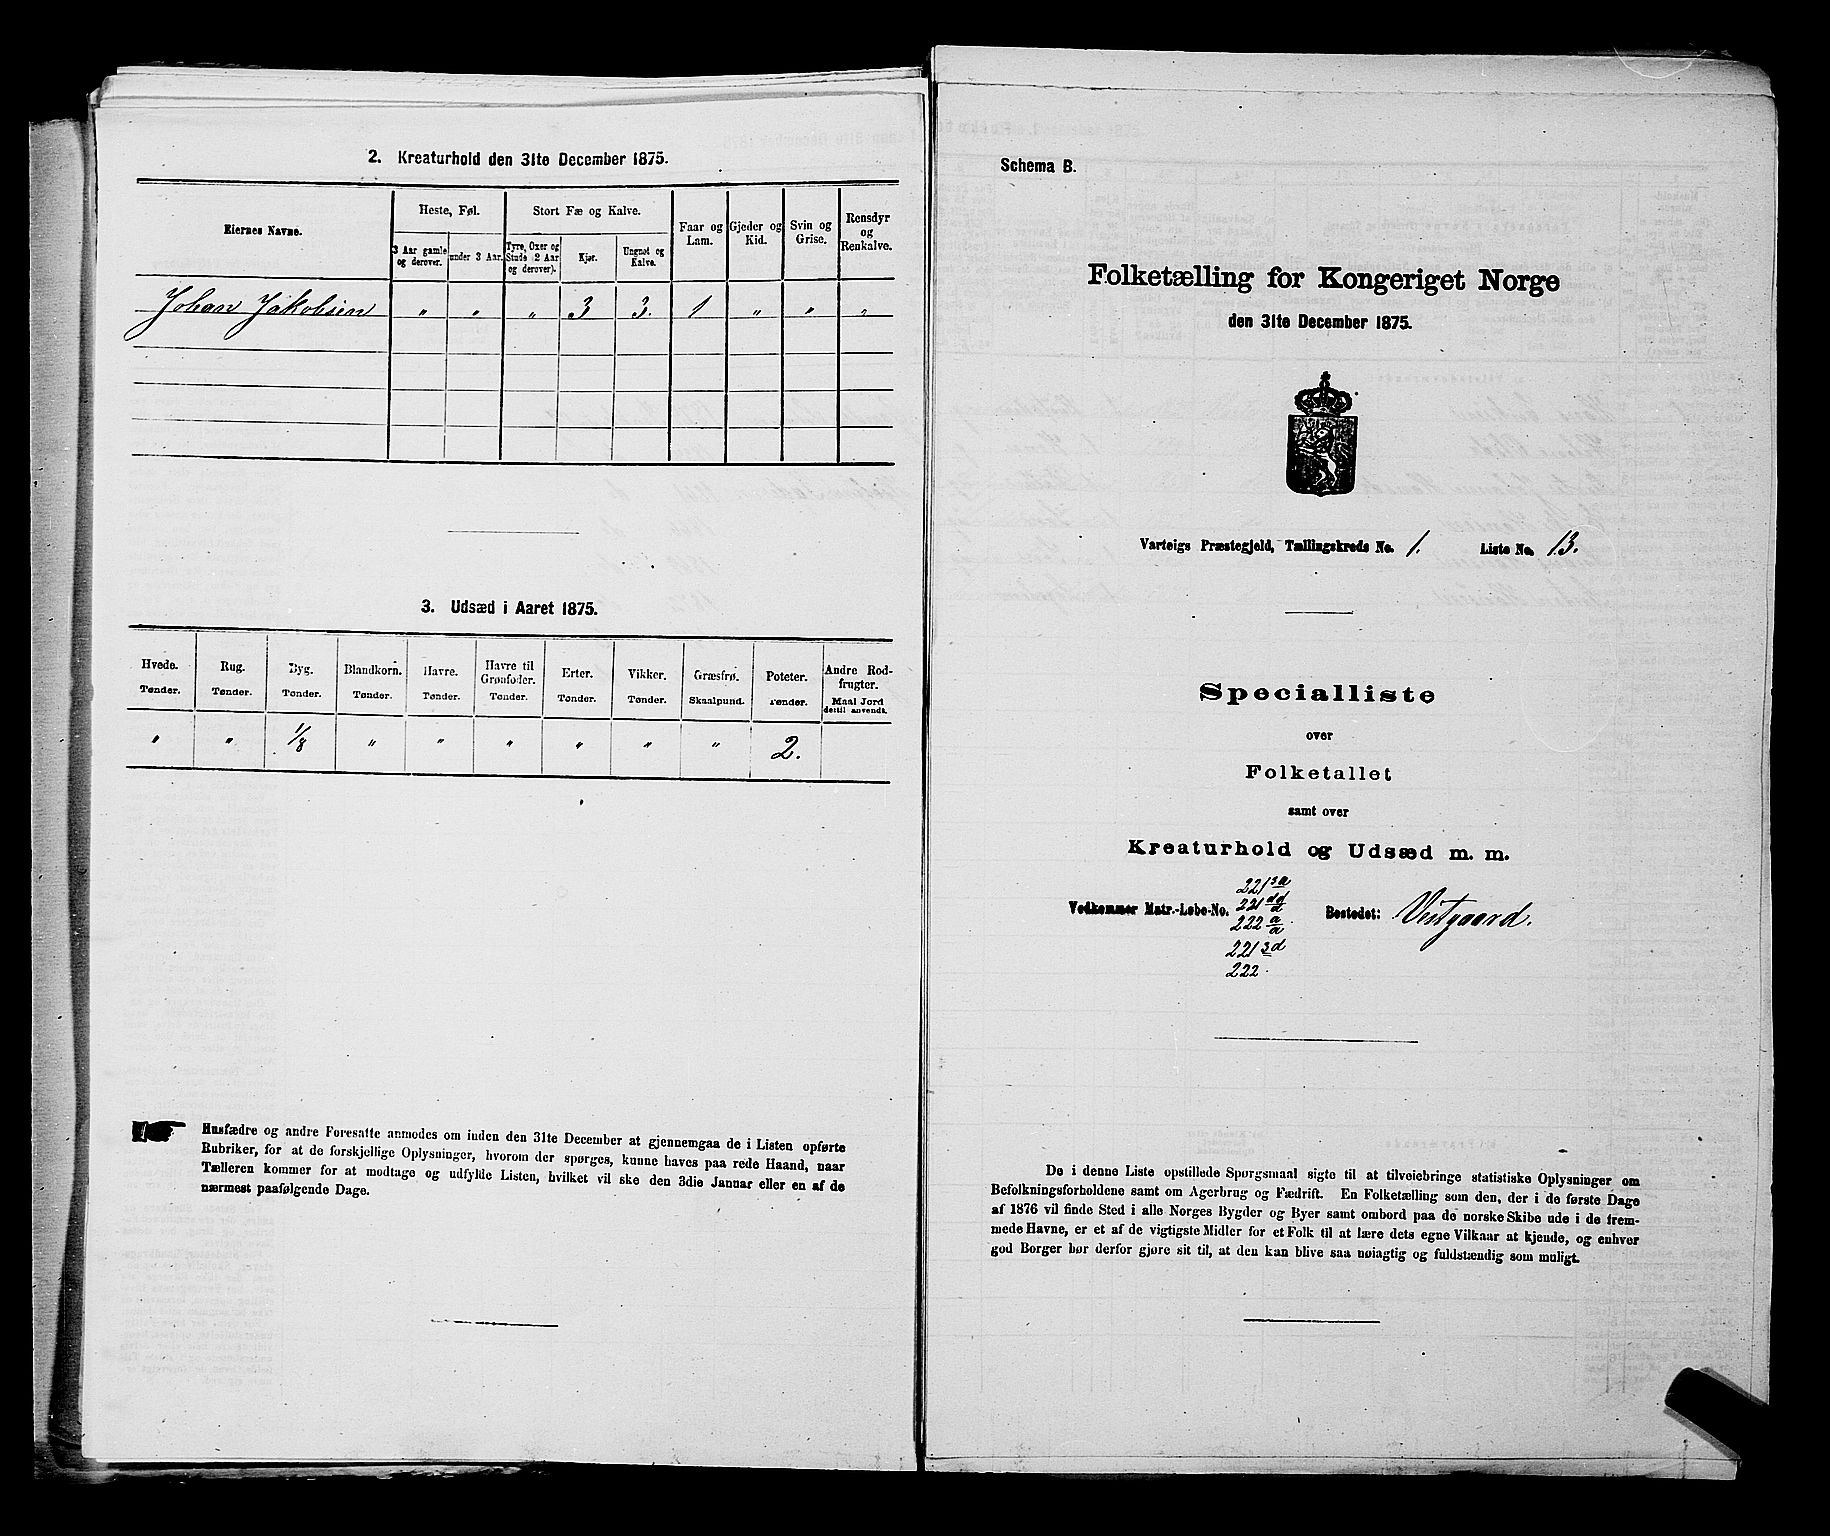 2. Kreaturhold den 31te December 1875.
Eiernes Navne. Heste, Føl. Stort Fæ og Kalve. Faar og Lam. Gjeder og Kid. Svin og Grise. Rensdyr og Renkalve.
3 Aar gamle og derover. under 3 Aar. Tyre, Oxer og Stude (2 Aar og derover). Kjør. Ungnøt og Kalve.
Johan Jakobsen " " " 3 3. 1 " " "
3. Udsæd i Aaret 1875.
Hvede. Rug. Byg. Blandkorn. Havre. Havre til Grønfoder. Erter. Vikker. Græsfrø. Poteter. Andre Rodfrugter.
Tønder. Tønder. Tønder. Tønder. Tønder. Tønder. Tønder. Tønder. Skaalpund. Tønder. Maal Jord dertil anvendt.
" " 1/8 " " " " " " 2.
Husfædre og andre Foresatte anmodes om inden den 31te December at gjennemgaa de i Listen opførte
Rubriker, for at de forskjellige Oplysninger, hvorom der spørges, kunne haves paa rede Haand, naar
Tælleren kommer for at modtage og udfylde Listen, hvilket vil ske den 3die Januar eller en af de
nærmest paafølgende Dage.
Schema B.
Folketælling for Kongeriget Norge
den 31te December 1875.
Varteigs Præstegjeld, Tællingskreds No. 1. Liste No. 13.
Specialliste
over
Folketallet
samt over
Kreaturhold og Udsæd m. m.
Vedkommer Matr.-Løbe-No. 221 3a
221 dd/d
222 a/a
221 3d
222.
Bostedet: Vestgaard.
De i denne Liste opstillede Spørgsmaal sigte til at tilveiebringe statistiske Oplysninger om
Befolkningsforholdene samt om Agerbrug og Fædrift. En Folketælling som den, der i de første Dage
af 1876 vil finde Sted i alle Norges Bygder og Byer samt ombord paa de norske Skibe ude i de frem-
mede Havne, er et af de vigtigste Midler for et Folk til at lære dets egne Vilkaar at kjende, og enhver
god Borger bør derfor gjøre sit til, at den kan blive saa nøiagtig og fuldstændig som muligt.